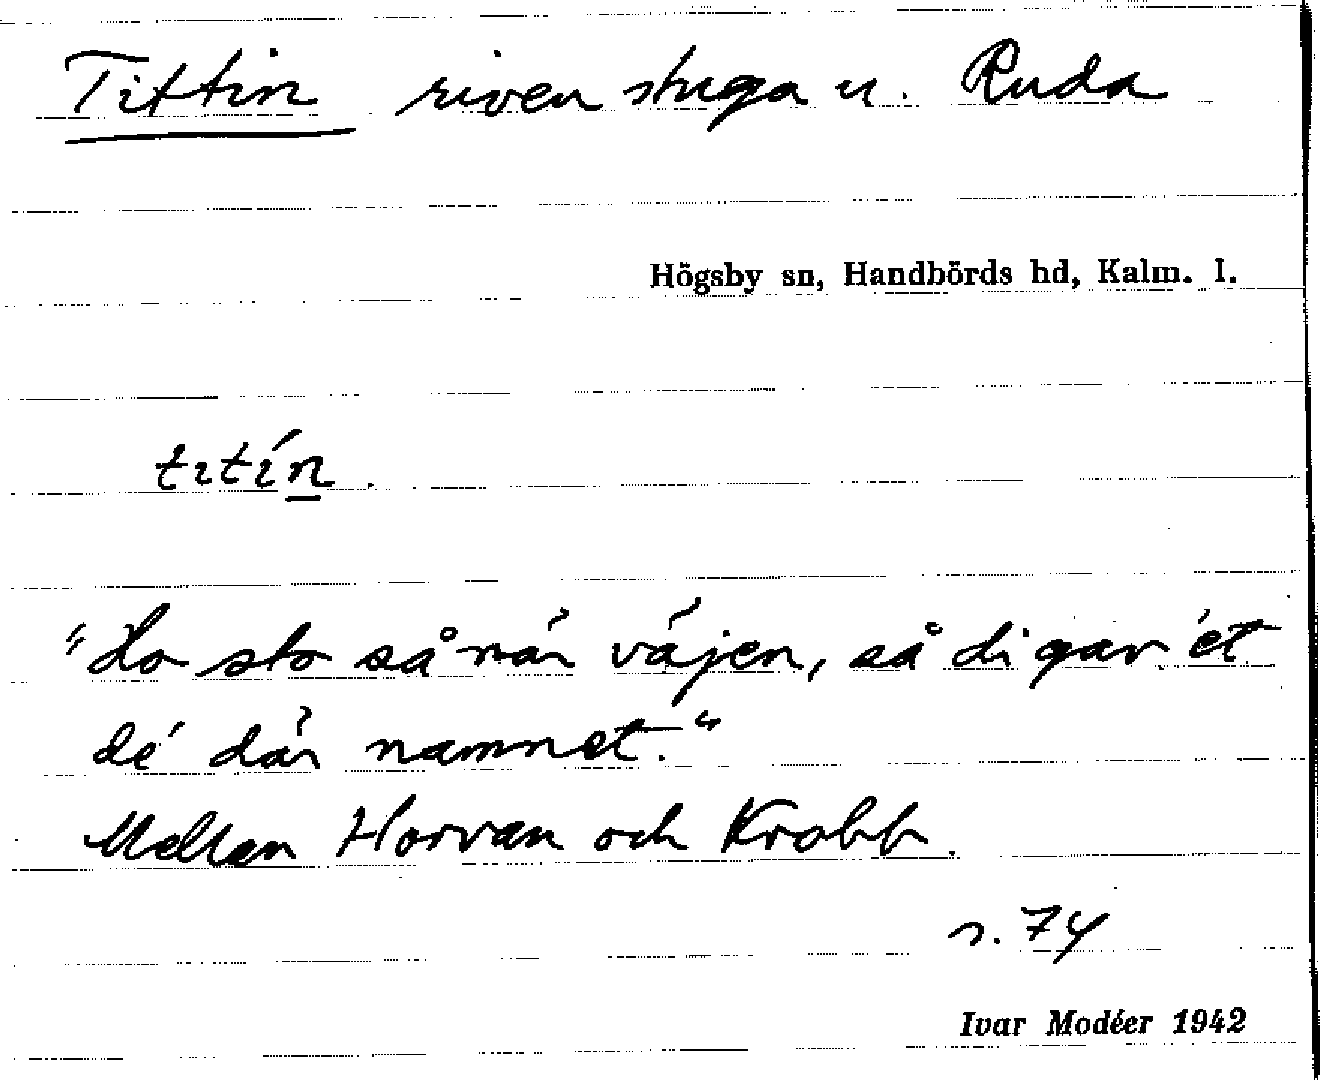 Tittin riven stuga u. Ruda
Högsby sn, Handbörds hd, Kalm. l.
tɪtín.
"Ho sto så när väjen, så di gav ét
dé där namnet."
Mellan Horvan och Krobb.
s. 74
Ivar Modéer 1942